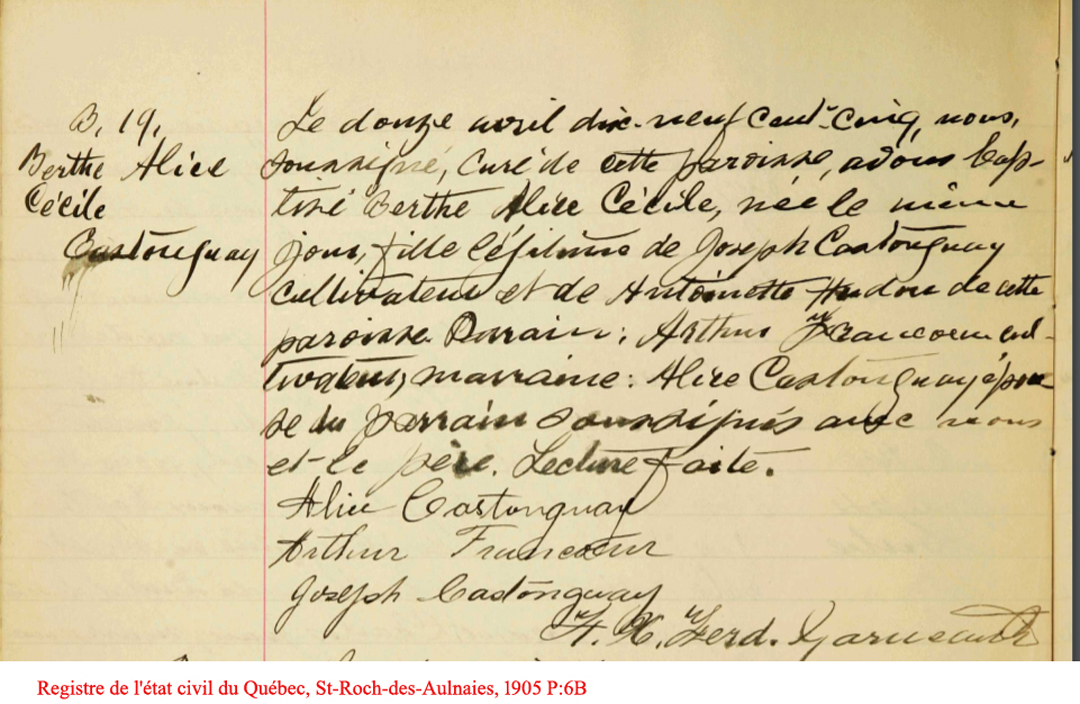 B. 19.
Berthe Alice
Cécile
Castonguay
Le douze avril dix-neuf cent-cinq, nous,
soussigné, curé de cette paroisse, avons bap-
tisé Berthe Alice Cécile, née le même
jour, fille légitime de Joseph Castonguay
cultivateur et de Antoinette Hudon de cette
paroisse. Parrain: Arthur Francoeur cul-
tivateur, marraine: Alice Castonguay épou
se du parrain soussignés avec nous
et le père. Lecture faite.
Alice Castonguay
Arthur Francoeur
Joseph Castonguay
F. X. Ferd.
Registre de l'état civil du Québec, St-Roch-des-Aulnaies, 1905 P:6B